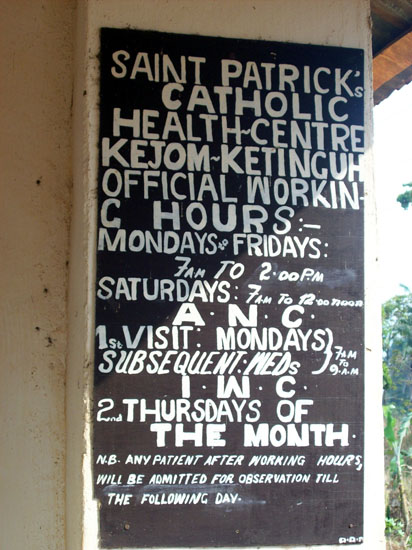 SAINT PATRICK's
CATHOLIC
HEALTH~CENTRE
KEJOM~KETINGUH
OFFICIAL WORKIN-
G HOURS:-
MONDAYS & FRIDAYS:
7AM TO 2.00P.M
SATURDAYS: 7AM TO 12.00 NOON
A.N.C.
1st VISIT: MONDAYS)
SUBSEQUENT: WEDs) 7AM TO 9.A.M
I.W.C.
2nd THURSDAYS OF
THE MONTH.
N.B. ANY PATIENT AFTER WORKING HOURS,
WILL BE ADMITTED FOR OBSERVATION TILL
THE FOLLOWING DAY.